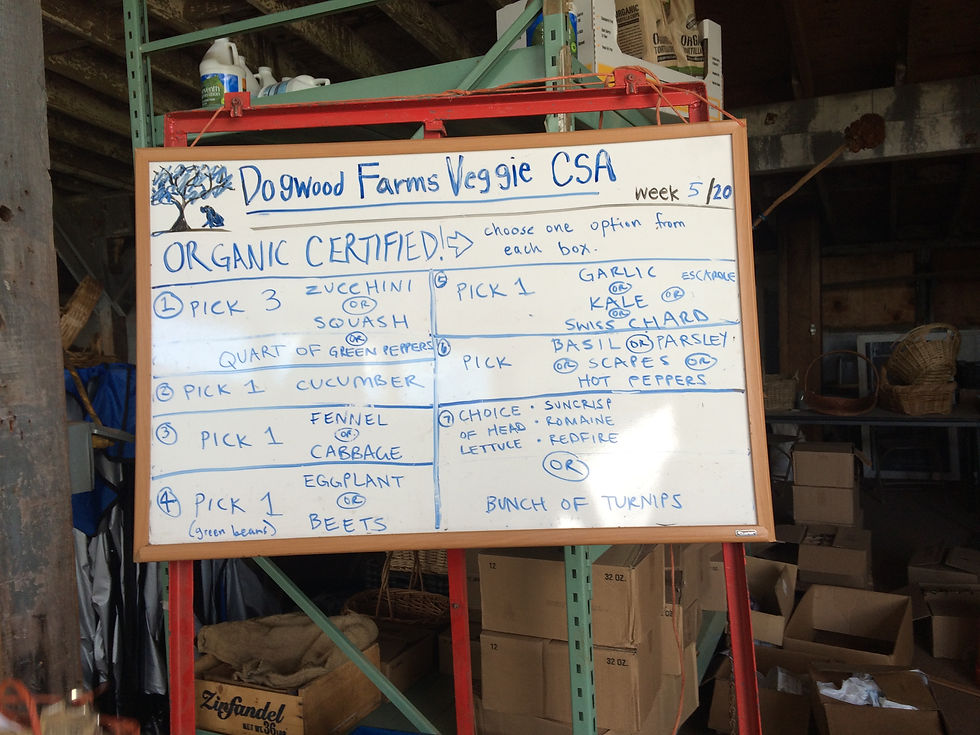 ORGANIC
ORGANIC
TORTILLA CHIPS
Dogwood Farms Veggie CSA
week 5/20
ORGANIC CERTIFIED!
choose one option from
each box.
① PICK 3
ZUCCHINI
OR
SQUASH
OR
QUART OF GREEN PEPPERS
② PICK 1 CUCUMBER
③ PICK 1
FENNEL
OR
CABBAGE
④ PICK 1
(green beans)
EGGPLANT
OR
BEETS
⑤ PICK 1
GARLIC ESCAROLE
OR
KALE OR
OR
SWISS CHARD
⑥ PICK
BASIL OR PARSLEY
OR SCAPES OR
HOT PEPPERS
⑦ CHOICE • SUNCRISP
OF HEAD • ROMAINE
LETTUCE • REDFIRE
OR
BUNCH OF TURNIPS
12
32 OZ.
12
32 OZ.
Zinfandel
NET WT. 36 LBS